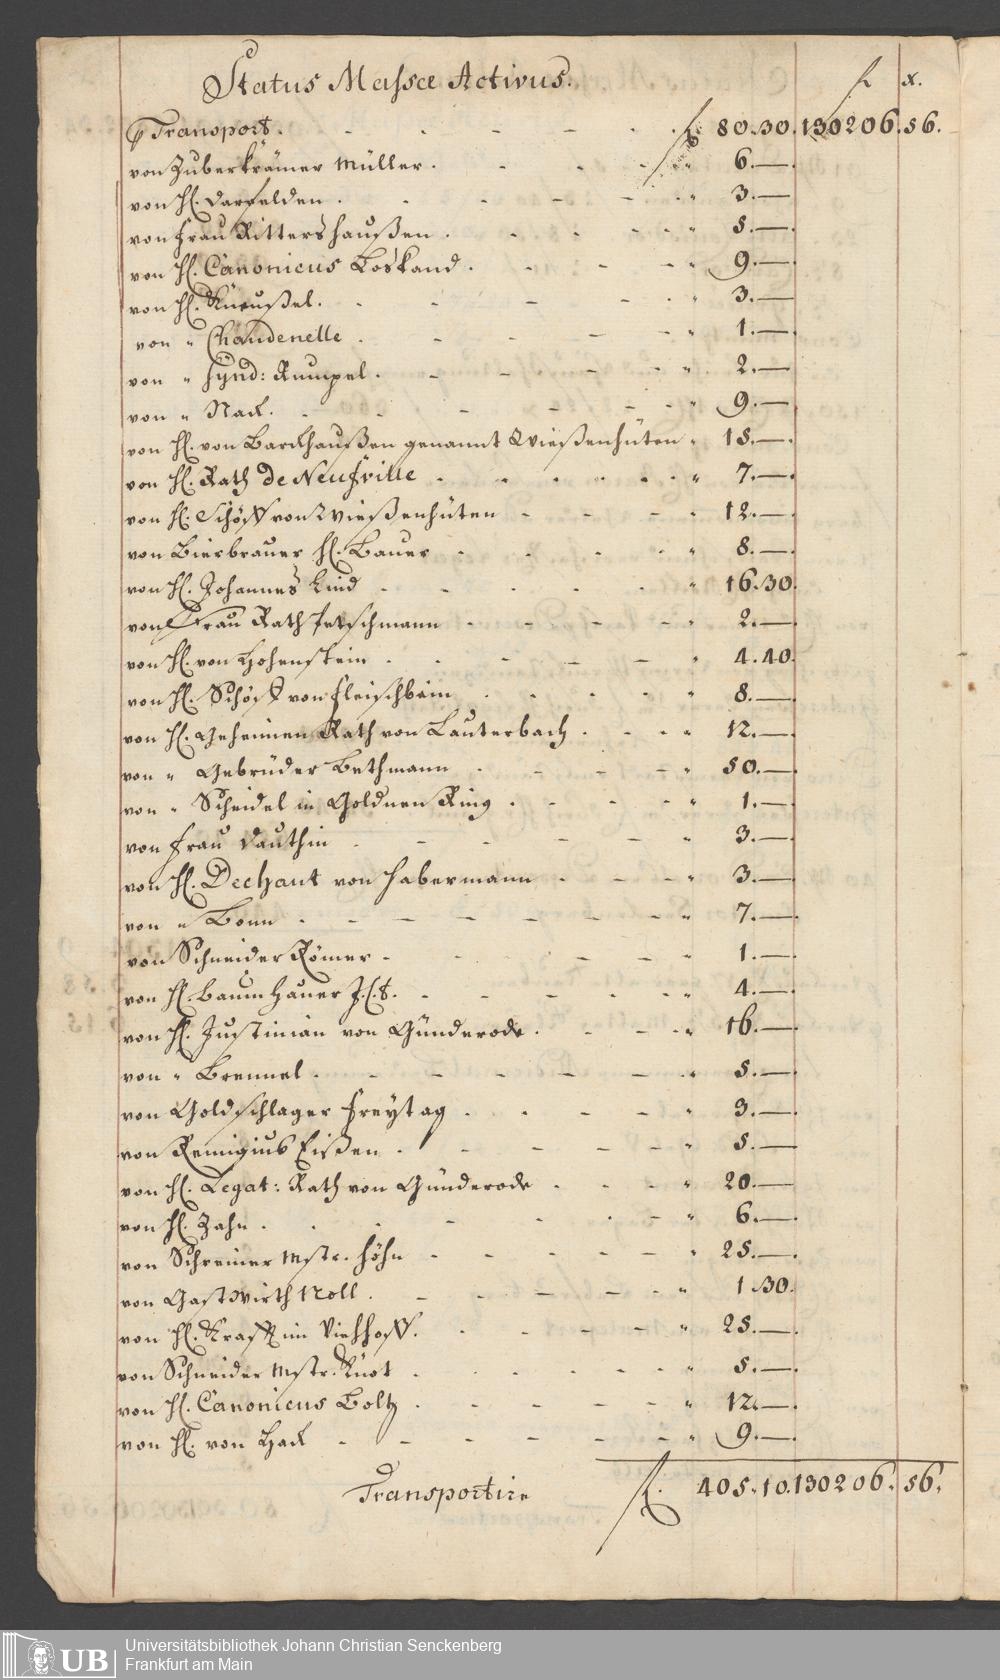 Status Massæ Activus. f. x.
Transport. f. 80.30. 130206.56.
von Zuberkrämer Müller. " 6.—.
von H. Darfelden. " 3.—
von Frau Rittershaußen. " 5.—.
von H. Canonicus Loskand. " 9.—.
von H. Kneußel. " 3.—
von " Chaudenelle " 1.—.
von " Synd: Rumpel. " 2.—
von " Nack. " 9.—.
von H. von Barckhaußen genannt Wießenhüten " 15.—.
von H. Rath de Neufville " 7.—.
von H. Schöff von Wießenhüten " 12.—.
von Bierbrauer H. Bauer " 8.—.
von H. Johannes Lind " 16.30.
von Frau Rath Petschmann " 2.—.
von H. von Hohenstein " 4.40.
von H. Schöff von Fleischbein " 8.—.
von H. Geheimen Rath von Lauterbach " 12.—.
von " Gebrüder Bethmann " 50.—.
von " Scheidel in Goldnen Ring " 1.—
von Frau Dauthin " 3.—.
von H. Dechant von Habermann " 3.—.
von " Bonn " 7.—.
von Schneider Römer " 1.—.
von H. Baumhauer J.C.S. " 4.—.
von H. Justinian von Günderode. " 16.—.
von " Brennel. " 5.—.
von Goldschlager Freytag " 3.—.
von Remigius Eißen " 5.—
von H. Legat: Rath von Günderode " 20.—
von H. Zahn. " 6.—.
von Schreiner Mstr. Höhn " 25.—.
von Gastwirth Noll. " 1.30.
von H. Krafft im Viehhoff. " 25.—.
von Schneider Mstr. Knot " 5.—.
von H. Canonicus Boltz " 12.—.
von H. von Hack " 9.—.
Transportire f. 405.10. 130206.56.
UB Universitätsbibliothek Johann Christian Senckenberg
Frankfurt am Main